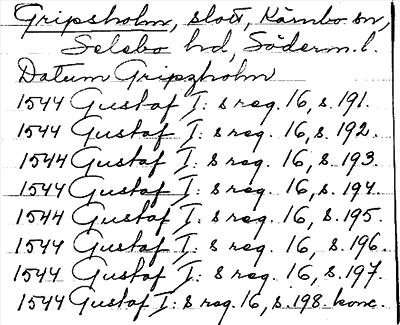 Gripsholm, slott, Kärnbo sn,
Selebo hd, Söderm. l.
Datum Gripzholm
1544 Gustaf I: s reg. 16, s. 191.
1544 Gustaf I: s reg. 16, s. 192.
1544 Gustaf I: s reg. 16, s. 193.
1544 Gustaf I: s reg. 16, s. 194.
1544 Gustaf I: s reg. 16, s. 195.
1544 Gustaf I: s reg. 16, s. 196.
1544 Gustaf I: s reg. 16, s. 197.
1544 Gustaf I: s reg. 16, s. 198 konc.